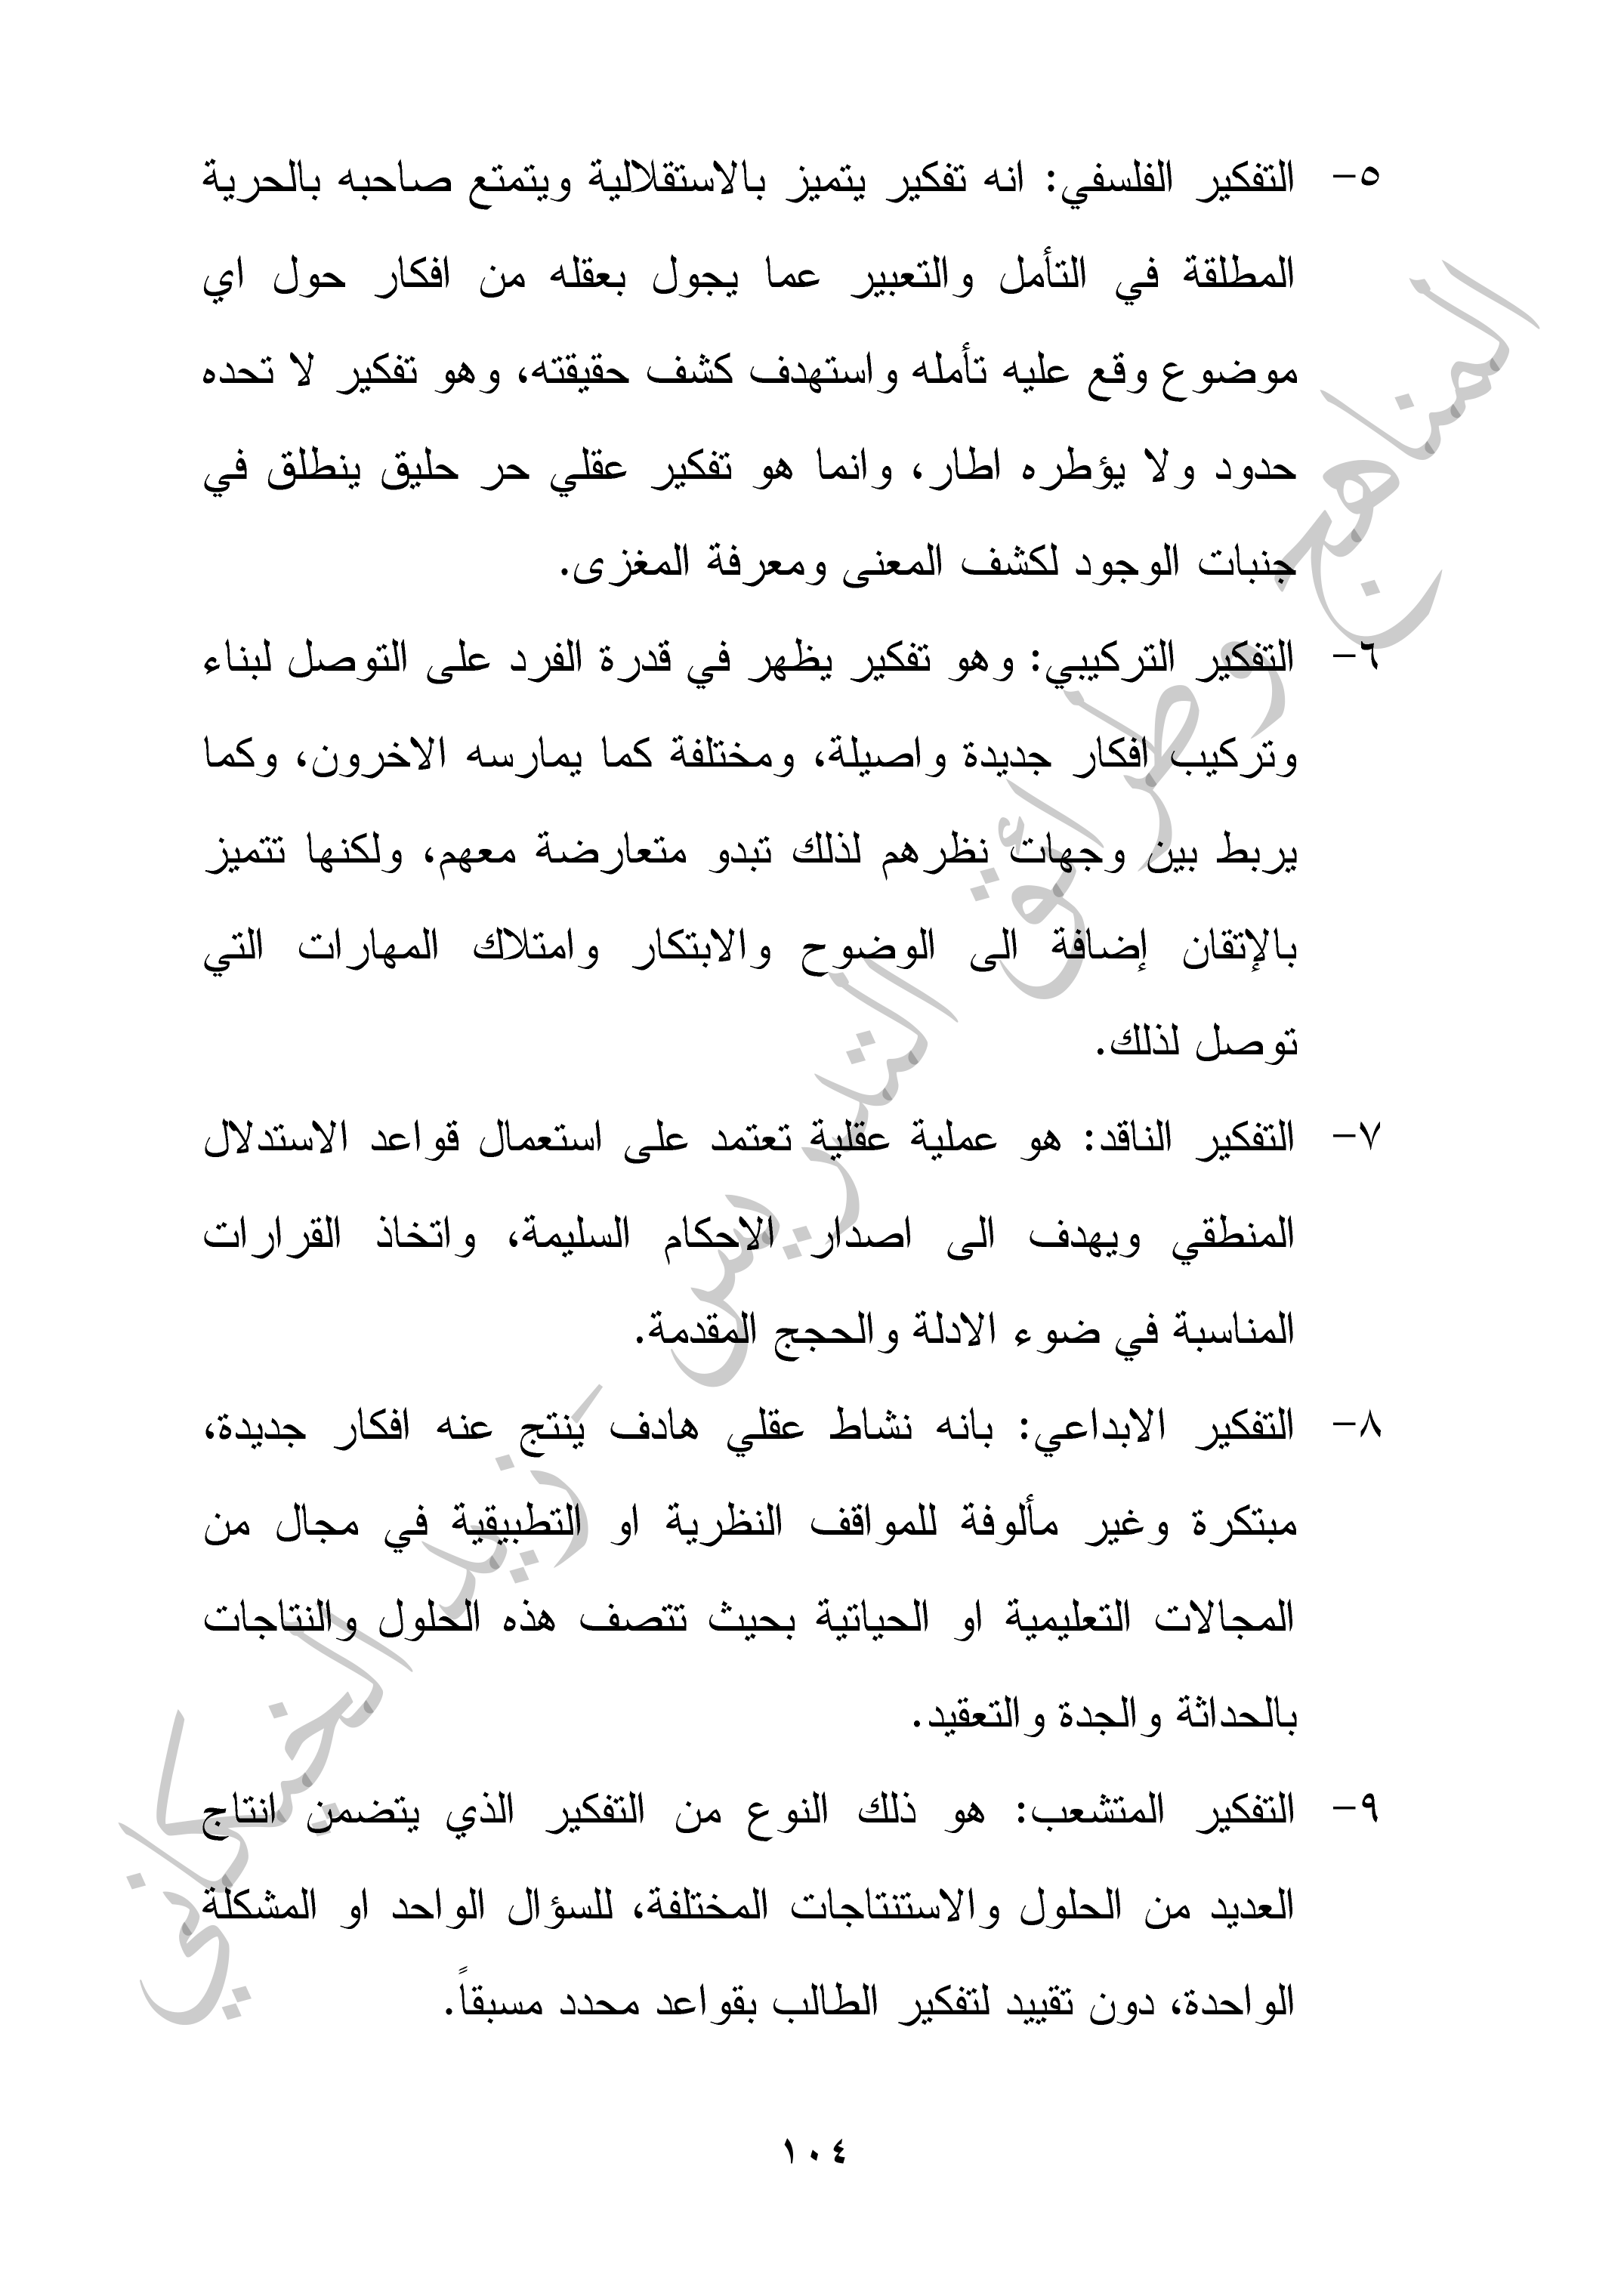 ٥- التفكير الفلسفي: انه تفكير يتميز بالاستقلالية ويتمتع صاحبه بالحرية
المطلقة في التأمل والتعبير عما يجول بعقله من افكار حول اي
موضوع وقع عليه تأمله واستهدف كشف حقيقته، وهو تفكير لا تحده
حدود ولا يؤطره اطار، وانما هو تفكير عقلي حر حليق ينطلق في
جنبات الوجود لكشف المعنى ومعرفة المغزى.
٦- التفكير التركيبي: وهو تفكير يظهر في قدرة الفرد على التوصل لبناء
وتركيب افكار جديدة واصيلة، ومختلفة كما يمارسه الاخرون، وكما
يربط بين وجهات نظرهم لذلك تبدو متعارضة معهم، ولكنها تتميز
بالإتقان إضافة الى الوضوح والابتكار وامتلاك المهارات التي
توصل لذلك.
٧- التفكير الناقد: هو عملية عقلية تعتمد على استعمال قواعد الاستدلال
المنطقي ويهدف الى اصدار الاحكام السليمة، واتخاذ القرارات
المناسبة في ضوء الادلة والحجج المقدمة.
٨- التفكير الابداعي: بانه نشاط عقلي هادف ينتج عنه افكار جديدة،
مبتكرة وغير مألوفة للمواقف النظرية او التطبيقية في مجال من
المجالات التعليمية او الحياتية بحيث تتصف هذه الحلول والنتاجات
بالحداثة والجدة والتعقيد.
٩- التفكير المتشعب: هو ذلك النوع من التفكير الذي يتضمن انتاج
العديد من الحلول والاستنتاجات المختلفة، للسؤال الواحد او المشكلة
الواحدة، دون تقييد لتفكير الطالب بقواعد محدد مسبقاً.
١٠٤
المناهج وطرائق التدريس - زيد الخيكاني